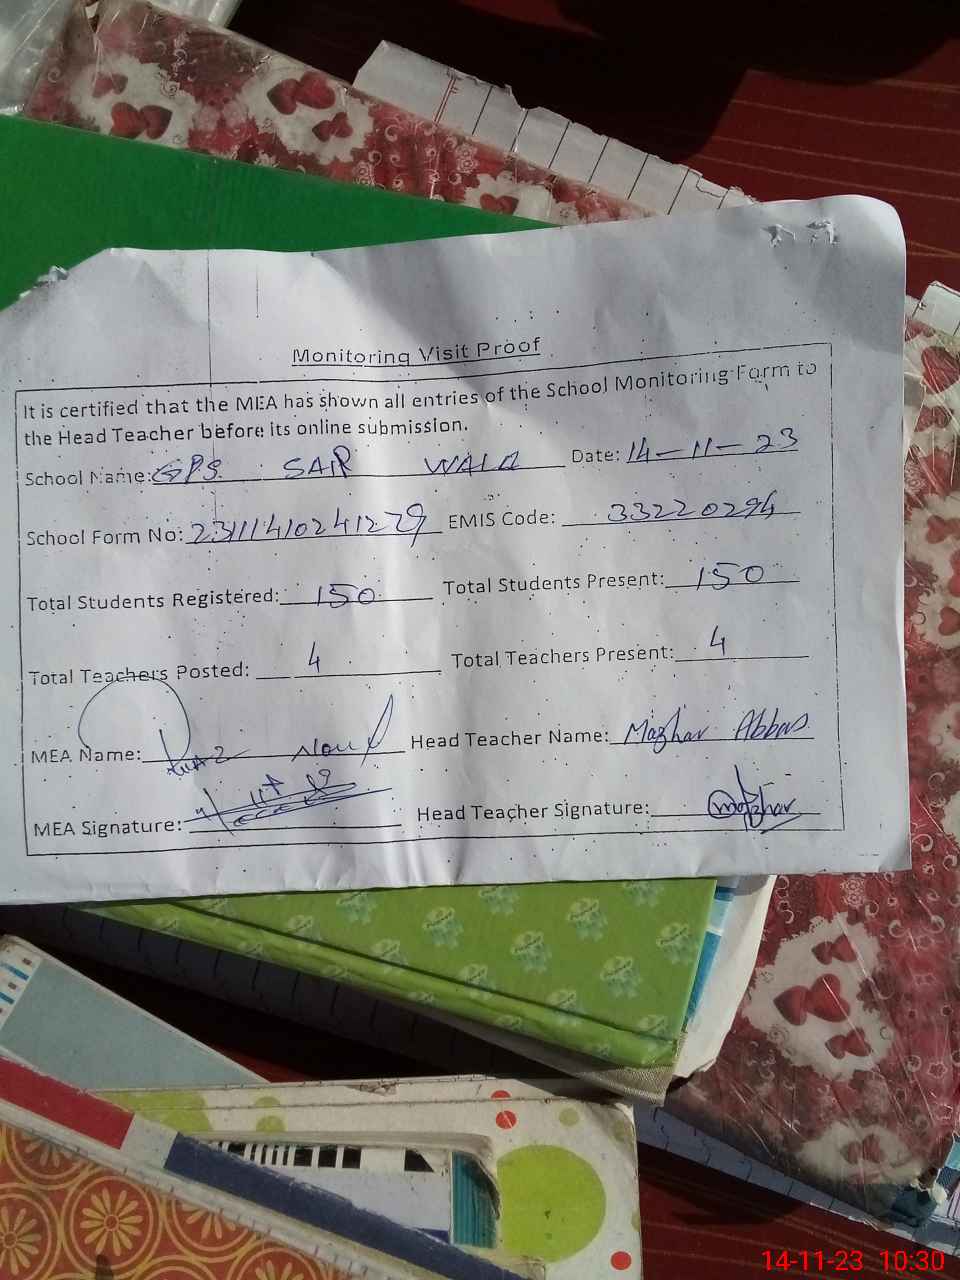 Monitoring Visit Proof
It is certified that the MEA has shown all entries of the School Monitoring Form to
the Head Teacher before its online submission.
School Name: GPS SAIR WALA Date: 14-11-23
School Form No: 23111410241229 EMIS Code: 33220294
Total Students Registered: 150 Total Students Present: 150
Total Teachers Posted: 4 Total Teachers Present: 4
MEA Name: Head Teacher Name: Mazhar Abbas
MEA Signature: Head Teacher Signature: Mazhar
14-11-23 10:30